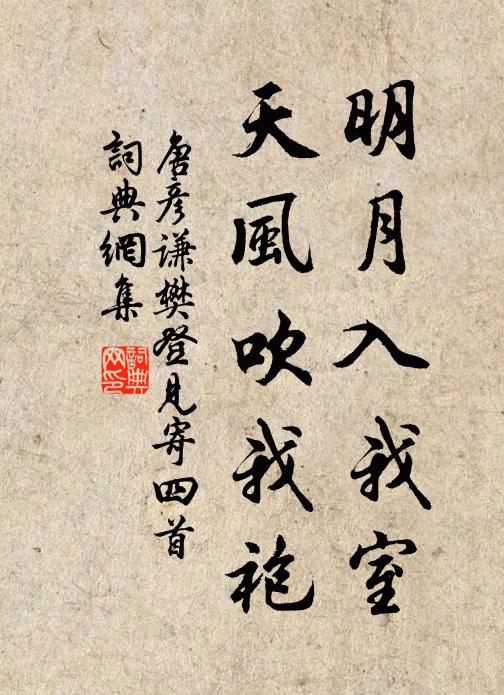 明月入我室
天風吹我袍
唐彥謙樊登見寄四首
詞典網集
詞典網印